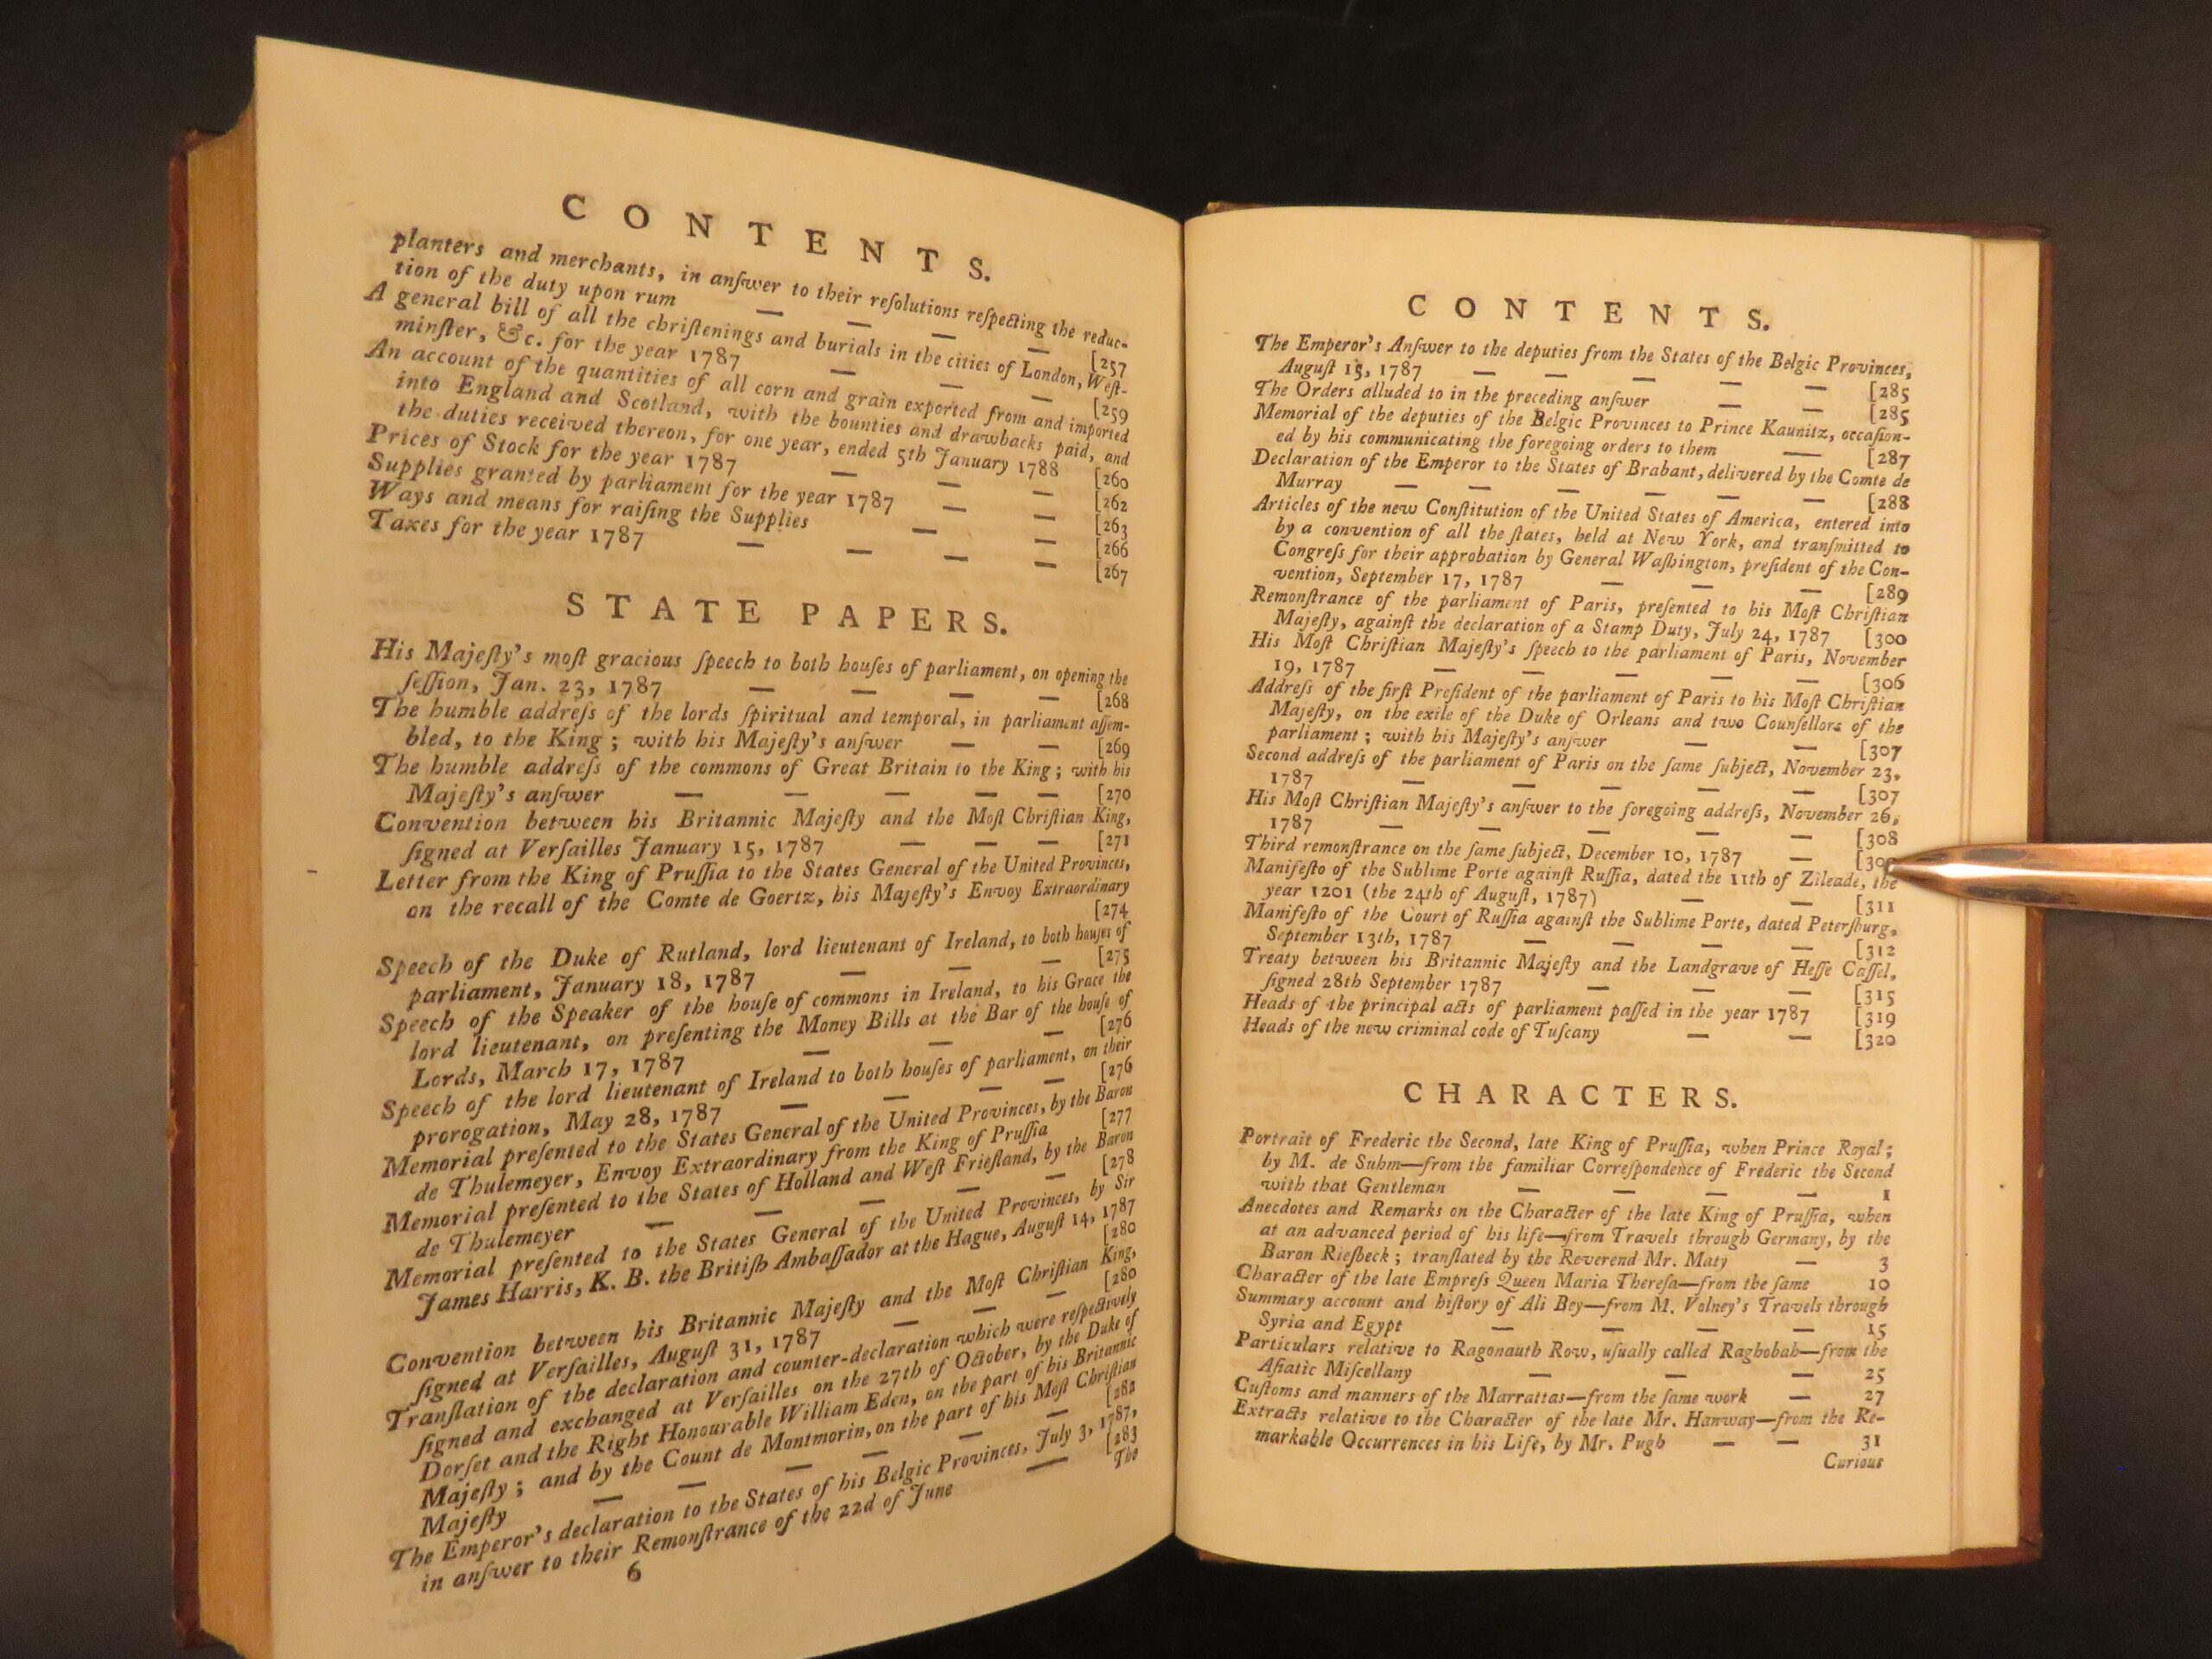 CONTENTS.
planters and merchants, in anſwer to their reſolutions reſpecting the reduc-
tion of the duty upon rum — — — — [257
A general bill of all the chriſtenings and burials in the cities of London, Weſt-
minſter, &c. for the year 1787 — — — [259
An account of the quantities of all corn and grain exported from and imported
into England and Scotland, with the bounties and drawbacks paid, and
the duties received thereon, for one year, ended 5th January 1788 [260
Prices of Stock for the year 1787 — — — [262
Supplies granted by parliament for the year 1787 — — [263
Ways and means for raiſing the Supplies — — [266
Taxes for the year 1787 — — — — [267
STATE PAPERS.
His Majeſty's moſt gracious ſpeech to both houſes of parliament, on opening the
ſeſſion, Jan. 23, 1787 — — — — [268
The humble addreſs of the lords ſpiritual and temporal, in parliament aſſem-
bled, to the King; with his Majeſty's anſwer — — [269
The humble addreſs of the commons of Great Britain to the King; with his
Majeſty's anſwer — — — — — [270
Convention between his Britannic Majeſty and the Moſt Chriſtian King,
ſigned at Verſailles January 15, 1787 — — — [271
Letter from the King of Pruſſia to the States General of the United Provinces,
on the recall of the Comte de Goertz, his Majeſty's Envoy Extraordinary
[274
Speech of the Duke of Rutland, lord lieutenant of Ireland, to both houſes of
parliament, January 18, 1787 — — — [275
Speech of the Speaker of the houſe of commons in Ireland, to his Grace the
lord lieutenant, on preſenting the Money Bills at the Bar of the houſe of
Lords, March 17, 1787 — — — [276
Speech of the lord lieutenant of Ireland to both houſes of parliament, on their
prorogation, May 28, 1787 — — — — [276
Memorial preſented to the States General of the United Provinces, by the Baron
de Thulemeyer, Envoy Extraordinary from the King of Pruſſia [277
Memorial preſented to the States of Holland and Weſt Frieſland, by the Baron
de Thulemeyer — — — — — [278
Memorial preſented to the States General of the United Provinces, by Sir
James Harris, K. B. the Britiſh Ambaſſador at the Hague, Auguſt 14, 1787
[280
Convention between his Britannic Majeſty and the Moſt Chriſtian King,
ſigned at Verſailles, Auguſt 31, 1787 — — — [280
Tranſlation of the declaration and counter-declaration which were reſpectively
ſigned and exchanged at Verſailles on the 27th of October, by the Duke of
Dorſet and the Right Honourable William Eden, on the part of his Britannic
Majeſty; and by the Count de Montmorin, on the part of his Moſt Chriſtian
Majeſty — — — — — — [282
The Emperor's declaration to the States of his Belgic Provinces, July 3, 1787,
in anſwer to their Remonſtrance of the 22d of June — [283
6 The
CONTENTS.
The Emperor's Anſwer to the deputies from the States of the Belgic Provinces,
Auguſt 15, 1787 — — — — — [285
The Orders alluded to in the preceding anſwer — — [285
Memorial of the deputies of the Belgic Provinces to Prince Kaunitz, occaſion-
ed by his communicating the foregoing orders to them — [287
Declaration of the Emperor to the States of Brabant, delivered by the Comte de
Murray — — — — — — [288
Articles of the new Conſtitution of the United States of America, entered into
by a convention of all the ſtates, held at New York, and tranſmitted to
Congreſs for their approbation by General Waſhington, preſident of the Con-
vention, September 17, 1787 — — — [289
Remonſtrance of the parliament of Paris, preſented to his Moſt Chriſtian
Majeſty, againſt the declaration of a Stamp Duty, July 24, 1787 [300
His Moſt Chriſtian Majeſty's ſpeech to the parliament of Paris, November
19, 1787 — — — — — [306
Addreſs of the firſt Preſident of the parliament of Paris to his Moſt Chriſtian
Majeſty, on the exile of the Duke of Orleans and two Counſellors of the
parliament; with his Majeſty's anſwer — — [307
Second addreſs of the parliament of Paris on the ſame ſubject, November 23,
1787 — — — — — [307
His Moſt Chriſtian Majeſty's anſwer to the foregoing addreſs, November 26,
1787 — — — — — [308
Third remonſtrance on the ſame ſubject, December 10, 1787 —
Manifeſto of the Sublime Porte againſt Ruſſia, dated the 11th of Zileade, the
year 1201 (the 24th of Auguſt, 1787) — — [311
Manifeſto of the Court of Ruſſia againſt the Sublime Porte, dated Peterſburg,
September 13th, 1787 — — — — [312
Treaty between his Britannic Majeſty and the Landgrave of Heſſe Caſſel,
ſigned 28th September 1787 — — — [315
Heads of the principal acts of parliament paſſed in the year 1787 [319
Heads of the new criminal code of Tuſcany — — [320
CHARACTERS.
Portrait of Frederic the Second, late King of Pruſſia, when Prince Royal;
by M. de Suhm—from the familiar Correſpondence of Frederic the Second
with that Gentleman — — — — 1
Anecdotes and Remarks on the Character of the late King of Pruſſia, when
at an advanced period of his life—from Travels through Germany, by the
Baron Rieſbeck; tranſlated by the Reverend Mr. Maty — 3
Character of the late Empreſs Queen Maria Thereſa—from the ſame 10
Summary account and hiſtory of Ali Bey—from M. Volney's Travels through
Syria and Egypt — — — — 15
Particulars relative to Ragonauth Row, uſually called Raghobah—from the
Aſiatic Miſcellany — — — 25
Cuſtoms and manners of the Marrattas—from the ſame work — 27
Extracts relative to the Character of the late Mr. Hanway—from the Re-
markable Occurrences in his Life, by Mr. Pugh — — 31
Curious